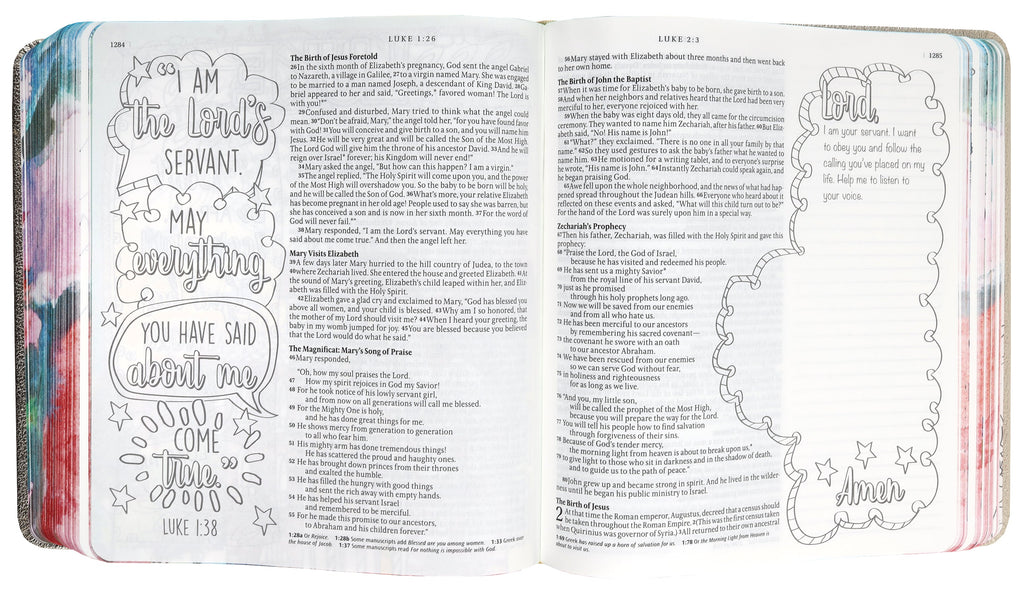 1284
LUKE 1:26
"I AM
the Lord's
SERVANT.
MAY
everything
YOU HAVE SAID
about me
COME
true."
LUKE 1:38
The Birth of Jesus Foretold
26In the sixth month of Elizabeth's pregnancy, God sent the angel Gabriel
to Nazareth, a village in Galilee, 27to a virgin named Mary. She was engaged
to be married to a man named Joseph, a descendant of King David. 28Ga-
briel appeared to her and said, "Greetings,* favored woman! The Lord is
with you!*"
29Confused and disturbed, Mary tried to think what the angel could
mean. 30"Don't be afraid, Mary," the angel told her, "for you have found favor
with God! 31You will conceive and give birth to a son, and you will name him
Jesus. 32He will be very great and will be called the Son of the Most High.
The Lord God will give him the throne of his ancestor David. 33And he will
reign over Israel* forever; his Kingdom will never end!"
34Mary asked the angel, "But how can this happen? I am a virgin."
35The angel replied, "The Holy Spirit will come upon you, and the power
of the Most High will overshadow you. So the baby to be born will be holy,
and he will be called the Son of God. 36What's more, your relative Elizabeth
has become pregnant in her old age! People used to say she was barren, but
she has conceived a son and is now in her sixth month. 37For the word of
God will never fail.*"
38Mary responded, "I am the Lord's servant. May everything you have
said about me come true." And then the angel left her.
Mary Visits Elizabeth
39A few days later Mary hurried to the hill country of Judea, to the town
40where Zechariah lived. She entered the house and greeted Elizabeth. 41At
the sound of Mary's greeting, Elizabeth's child leaped within her, and Eliz-
abeth was filled with the Holy Spirit.
42Elizabeth gave a glad cry and exclaimed to Mary, "God has blessed you
above all women, and your child is blessed. 43Why am I so honored, that
the mother of my Lord should visit me? 44When I heard your greeting, the
baby in my womb jumped for joy. 45You are blessed because you believed
that the Lord would do what he said."
The Magnificat: Mary's Song of Praise
46Mary responded,
"Oh, how my soul praises the Lord.
47 How my spirit rejoices in God my Savior!
48 For he took notice of his lowly servant girl,
and from now on all generations will call me blessed.
49 For the Mighty One is holy,
and he has done great things for me.
50 He shows mercy from generation to generation
to all who fear him.
51 His mighty arm has done tremendous things!
He has scattered the proud and haughty ones.
52 He has brought down princes from their thrones
and exalted the humble.
53 He has filled the hungry with good things
and sent the rich away with empty hands.
54 He has helped his servant Israel
and remembered to be merciful.
55 For he made this promise to our ancestors,
to Abraham and his children forever."
1:28a Or Rejoice. 1:28b Some manuscripts add Blessed are you among women. 1:33 Greek over
the house of Jacob. 1:37 Some manuscripts read For nothing is impossible with God.
LUKE 2:3
1285
56Mary stayed with Elizabeth about three months and then went back
to her own home.
The Birth of John the Baptist
57When it was time for Elizabeth's baby to be born, she gave birth to a son.
58And when her neighbors and relatives heard that the Lord had been very
merciful to her, everyone rejoiced with her.
59When the baby was eight days old, they all came for the circumcision
ceremony. They wanted to name him Zechariah, after his father. 60But Eliz-
abeth said, "No! His name is John!"
61"What?" they exclaimed. "There is no one in all your family by that
name." 62So they used gestures to ask the baby's father what he wanted to
name him. 63He motioned for a writing tablet, and to everyone's surprise
he wrote, "His name is John." 64Instantly Zechariah could speak again, and
he began praising God.
65Awe fell upon the whole neighborhood, and the news of what had hap-
pened spread throughout the Judean hills. 66Everyone who heard about it
reflected on these events and asked, "What will this child turn out to be?"
For the hand of the Lord was surely upon him in a special way.
Zechariah's Prophecy
67Then his father, Zechariah, was filled with the Holy Spirit and gave this
prophecy:
68 "Praise the Lord, the God of Israel,
because he has visited and redeemed his people.
69 He has sent us a mighty Savior*
from the royal line of his servant David,
70 just as he promised
through his holy prophets long ago.
71 Now we will be saved from our enemies
and from all who hate us.
72 He has been merciful to our ancestors
by remembering his sacred covenant—
73 the covenant he swore with an oath
to our ancestor Abraham.
74 We have been rescued from our enemies
so we can serve God without fear,
75 in holiness and righteousness
for as long as we live.
76 "And you, my little son,
will be called the prophet of the Most High,
because you will prepare the way for the Lord.
77 You will tell his people how to find salvation
through forgiveness of their sins.
78 Because of God's tender mercy,
the morning light from heaven is about to break upon us,*
79 to give light to those who sit in darkness and in the shadow of death,
and to guide us to the path of peace."
80John grew up and became strong in spirit. And he lived in the wilder-
ness until he began his public ministry to Israel.
The Birth of Jesus
2 At that time the Roman emperor, Augustus, decreed that a census should
be taken throughout the Roman Empire. 2(This was the first census taken
when Quirinius was governor of Syria.) 3All returned to their own ancestral
1:69 Greek has raised up a horn of salvation for us. 1:78 Or the Morning Light from Heaven is
about to visit us.
Lord,
I am your servant. I want
to obey you and follow the
calling you've placed on my
life. Help me to listen to
your voice.
Amen